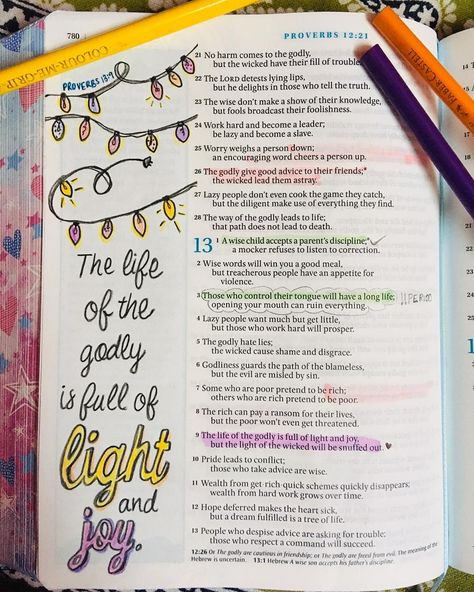 780
PROVERBS 12:21
COLOUR-ME-GRIP
FABER-CASTELL
PROVERBS 13:9
The life
of the
godly
is full of
light
and
joy.
21 No harm comes to the godly,
but the wicked have their fill of trouble.
22 The LORD detests lying lips,
but he delights in those who tell the truth.
23 The wise don't make a show of their knowledge,
but fools broadcast their foolishness.
24 Work hard and become a leader;
be lazy and become a slave.
25 Worry weighs a person down;
an encouraging word cheers a person up.
26 The godly give good advice to their friends;*
the wicked lead them astray.
27 Lazy people don't even cook the game they catch,
but the diligent make use of everything they find.
28 The way of the godly leads to life;
that path does not lead to death.
13 1 A wise child accepts a parent's discipline;*
a mocker refuses to listen to correction.
2 Wise words will win you a good meal,
but treacherous people have an appetite for
violence.
3 Those who control their tongue will have a long life; !!PERIOD
opening your mouth can ruin everything.
4 Lazy people want much but get little,
but those who work hard will prosper.
5 The godly hate lies;
the wicked cause shame and disgrace.
6 Godliness guards the path of the blameless,
but the evil are misled by sin.
7 Some who are poor pretend to be rich;
others who are rich pretend to be poor.
8 The rich can pay a ransom for their lives,
but the poor won't even get threatened.
9 The life of the godly is full of light and joy,
but the light of the wicked will be snuffed out.
10 Pride leads to conflict;
those who take advice are wise.
11 Wealth from get-rich-quick schemes quickly disappears;
wealth from hard work grows over time.
12 Hope deferred makes the heart sick,
but a dream fulfilled is a tree of life.
13 People who despise advice are asking for trouble;
those who respect a command will succeed.
12:26 Or The godly are cautious in friendship; or The godly are freed from evil. The meaning of the
Hebrew is uncertain. 13:1 Hebrew A wise son accepts his father's discipline.